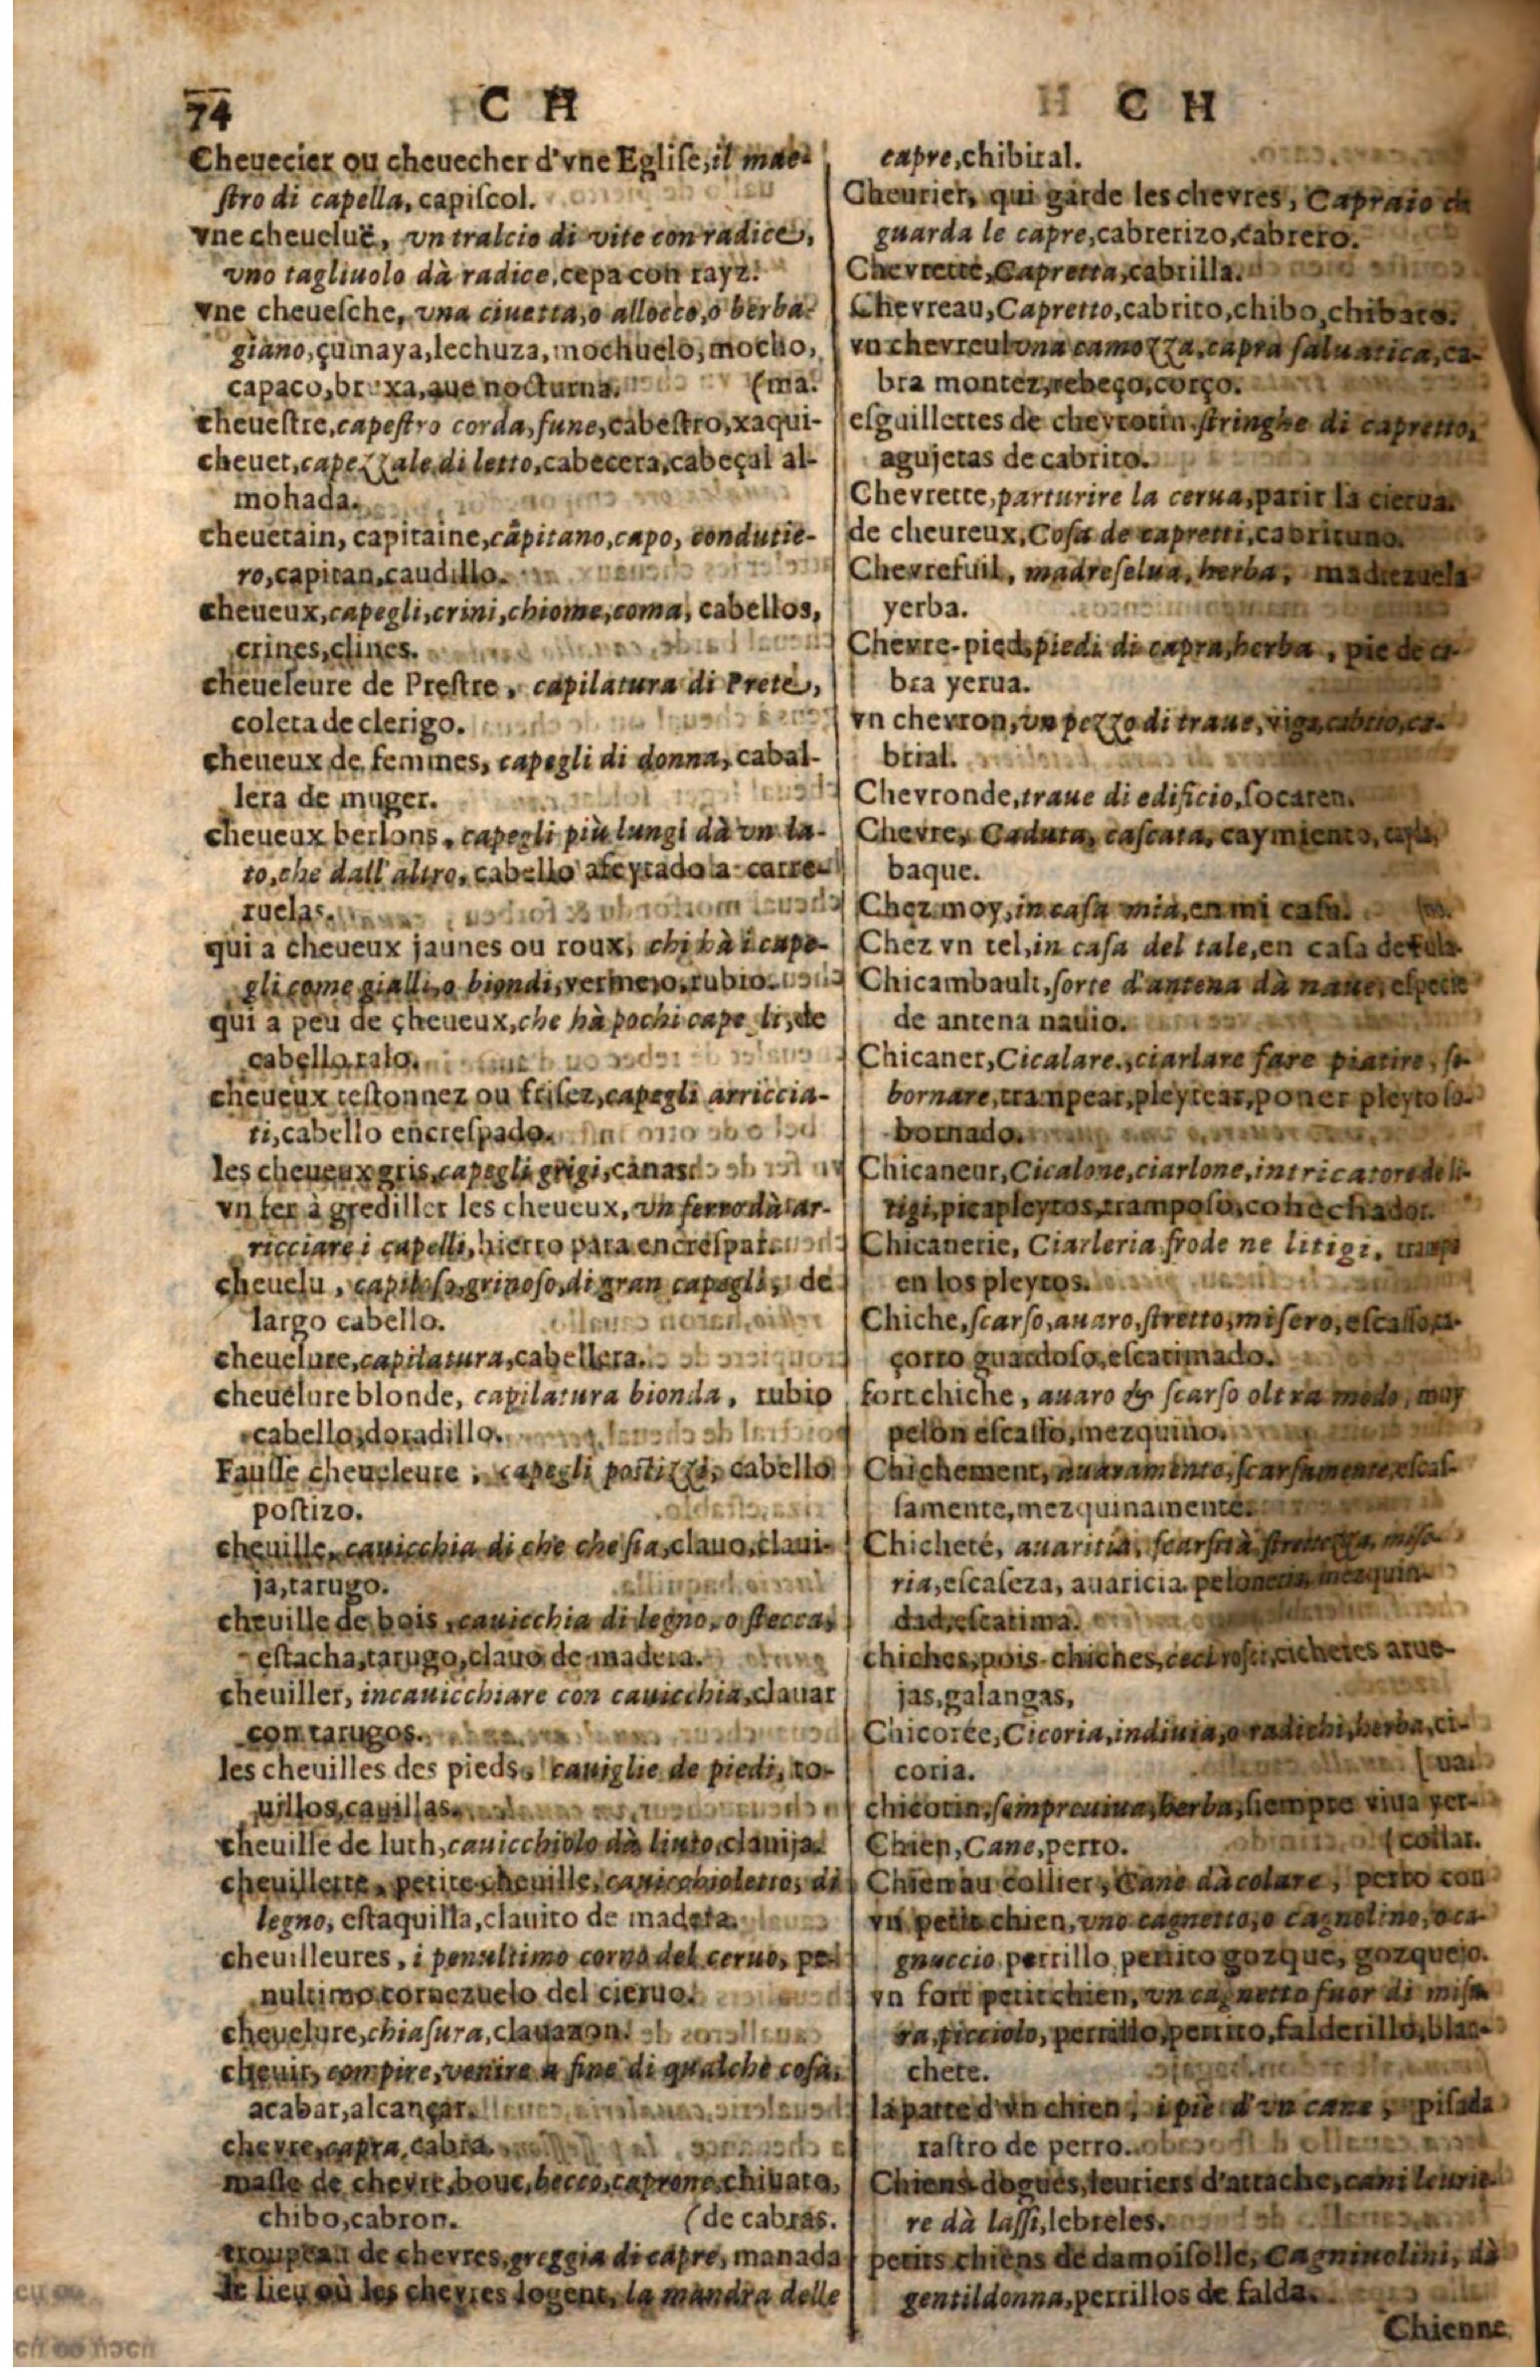 74
C H
Cheuecier ou cheuecher d'vne Egliſe, il mae-
ſtro di capella, capiſcol.
vne cheueluë, vn tralcio di vite con radice,
vno tagliuolo dà radice, cepa con rayz.
vne cheueſche, vna ciuetta, o allocco, o berba-
giano, çumaya, lechuza, mochuelo, mocho,
capaco, bruxa, aue nocturna. (ma.
cheueſtre, capeſtro corda, fune, cabeſtro, xaqui-
cheuet, capezzale di letto, cabecera, cabeçal al-
mohada.
cheuetain, capitaine, capitano, capo, condutie-
ro, capitan, caudillo.
cheueux, capegli, crini, chiome, coma, cabellos,
crines, clines.
cheueleure de Preſtre, capilatura di Prete,
coleta de clerigo.
cheueux de femmes, capegli di donna, cabal-
lera de muger.
cheueux berlons, capegli più lungi dà vn la-
to, che dall' altro, cabello afeytado a carre-
ruelas.
qui a cheueux jaunes ou roux, chi hà i cape-
gli come gialli, o biondi, vermejo, rubio.
qui a peu de cheueux, che hà pochi cape li, de
cabello ralo.
cheueux teſtonnez ou friſez, capegli arriccia-
ti, cabello encreſpado.
les cheueux gris, capegli grigi, canas.
vn fer à grediller les cheueux, vn ferro dà ar-
ricciare i capelli, hierro para encreſpar.
cheuelu, capiloſo, grinoſo, di gran capegli, de
largo cabello.
cheuelure, capilatura, cabellera.
cheuelure blonde, capilatura bionda, rubio
cabello, doradillo.
Fauſſe cheueleure, capegli poſtizzi, cabello
poſtizo.
cheuille, cauicchia di che che ſia, clauo, claui-
ja, tarugo.
cheuille de bois, cauicchia di legno, o ſtecca,
eſtacha, tarugo, clauo de madera.
cheuiller, incauicchiare con cauicchia, clauar
con tarugos.
les cheuilles des pieds, cauiglie de piedi, to-
uillos, cauillas.
cheuille de luth, cauicchiolo dà liuto, clauija.
cheuillette, petite cheuille, cauicchioletto, di
legno, eſtaquilla, clauito de madera.
cheuilleures, i penultimo corno del ceruo, pe-
nultimo cornezuelo del cieruo.
cheuelure, chiaſura, clauazon.
cheuir, compire, venire a fine di qualche coſa,
acabar, alcançar.
chevre, capra, cabra.
maſle de chevre, bouc, becco, caprone, chiuato,
chibo, cabron. (de cabras.
troupeau de chevres, greggia di capre, manada
le lieu où les chevres logent, la mandra delle
C H
capre, chibital.
Cheurier, qui garde les chevres, Capraio ch
guarda le capre, cabrerizo, cabrero.
Chevrette, Capretta, cabrilla.
Chevreau, Capretto, cabrito, chibo, chibato.
vn chevreul vna camozza, capra ſaluatica, ca-
bra montez, rebeço, corço.
eſguillettes de chevrotin ſtringhe di capretto,
agujetas de cabrito.
Chevrette, parturire la cerua, parir la cierua.
de cheureux, Coſa de capretti, cabrituno.
Chevrefuil, madreſelua, herba, madrezuela
yerba.
Chevre-pied, piedi di capra, herba, pie de ca-
bra yerua.
vn chevron, vn pezzo di traue, viga, cabrio, ca-
brial.
Chevronde, traue di edificio, ſocaren.
Chevre, Caduta, caſcata, caymiento,
baque.
Chez moy, in caſa mia, en mi caſa.
Chez vn tel, in caſa del tale, en caſa de fula-
Chicambault, ſorte d'antena dà naue, eſpecie
de antena nauio.
Chicaner, Cicalare, ciarlare fare piatire, ſo-
bornare, trampear, pleytear, poner pleyto ſo-
bornado.
Chicaneur, Cicalone, ciarlone, intricatore de li-
tigi, picapleytos, trampoſo, cohechador.
Chicanerie, Ciarleria frode ne litigi, trampa
en los pleytos.
Chiche, ſcarſo, auaro, ſtretto, miſero, eſcaſſo,
çorro guardoſo, eſcatimado.
fort chiche, auaro & ſcarſo oltra modo, muy
pelon eſcaſſo, mezquino.
Chichement, auaramente, ſcarſamente, eſcaſ-
ſamente, mezquinamente.
Chicheté, auaritia, ſcarſità ſtrettezza, miſe-
ria, eſcaſeza, auaricia peloneria mezquin-
dad, eſcatima.
chiches, pois chiches, ceci roſſi, cicheres arue-
jas, galangas,
Chicorée, Cicoria, indiuia, o radichi, herba, ci-
coria. (ua.
chicotin, ſempreuiua, herba, ſiempre viua yer-
Chien, Cane, perro. (collar.
Chien au collier, Cane dà colare, perro con
vn petit chien, vno cagnetto, o cagnolino, o ca-
gnuccio perrillo perrito gozque, gozquejo.
vn fort petit chien, vn cagnetto fuor di miſu
ra, picciolo, perrillo, perrito, falderillo, blan-
chete.
la patte d'vn chien, i piè d'vn cane, piſada
raſtro de perro.
Chiens dogues, leuriers d'attache, cani leurie-
re dà laſſi, lebreles.
petits chiens de damoiſelle, Cagninolini, dà
gentildonna, perrillos de falda.
Chienne